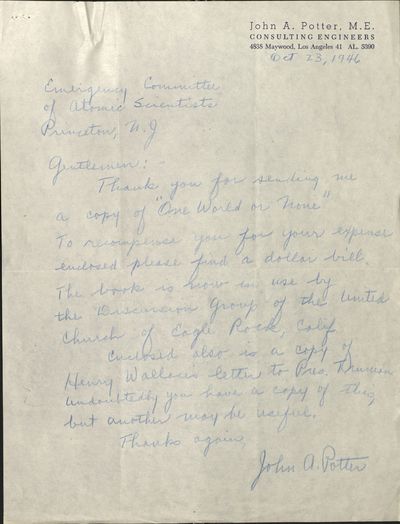 John A. Potter, M.E.
CONSULTING ENGINEERS
4835 Maywood, Los Angeles 41 AL. 5390
Oct 23, 1946
Emergency Committee
of Atomic Scientists
Princeton, N.J
Gentlemen:-
Thank you for sending me
a copy of "One World or None"
To recompense you for your expense
enclosed please find a dollar bill.
The book is now in use by
the Discussion Group of the United
Church of Eagle Rock, Calif
Enclosed also is a copy of
Henry Wallace's letter to Pres. Truman
Undoubtedly you have a copy of this,
but another may be useful.
Thanks again,
John A. Potter